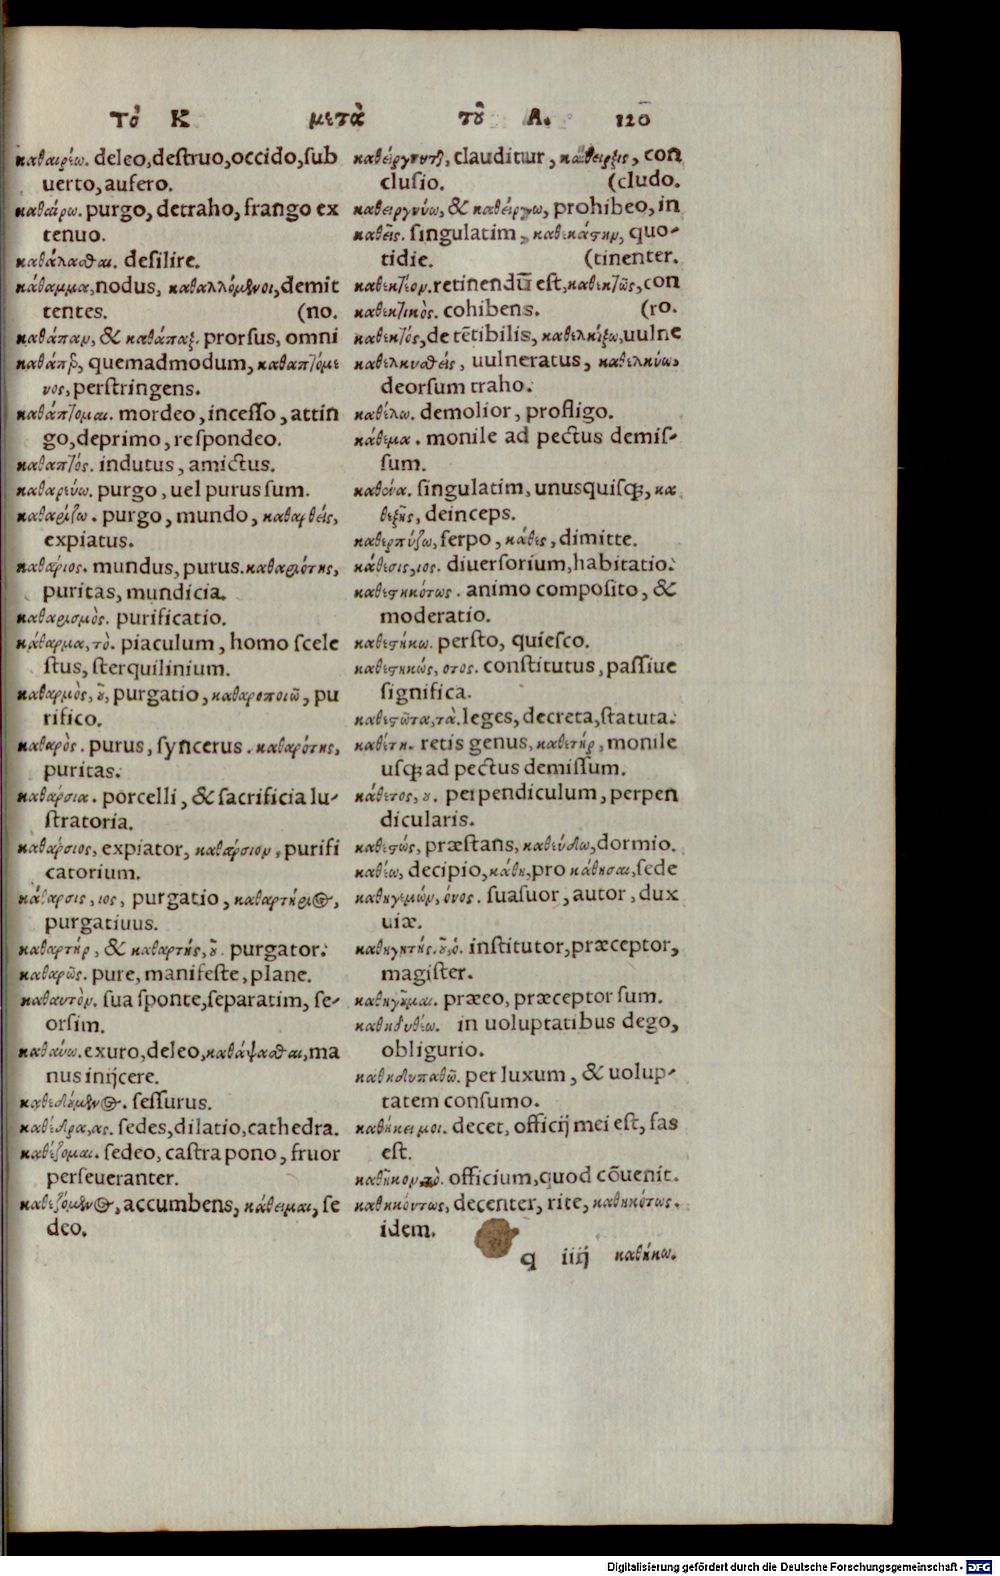 Τὸ Κ μετὰ τοῦ Α. 120
καθαιρέω. deleo, destruo, occido, sub
uerto, aufero.
καθαίρω. purgo, detraho, frango ex
tenuo.
καθάλασθαι. desilire.
κάθαμμα, nodus, καθαλλόμενοι, demit
tentes. (no.
καθάπαν, & καθάπαξ. prorsus, omni
καθάπερ, quemadmodum, καθαπτόμε
νος, perstringens.
καθάπτομαι. mordeo, incesso, attin
go, deprimo, respondeo.
καθαπτός. indutus, amictus.
καθαρεύω. purgo, uel purus sum.
καθαρίζω. purgo, mundo, καθαρθείς,
expiatus.
καθάριος. mundus, purus. καθαριότης,
puritas, mundicia.
καθαρισμὸς. purificatio.
κάθαρμα, τὸ. piaculum, homo scele
stus, sterquilinium.
καθαρμὸς, οῦ, purgatio, καθαροποιῶ, pu
rifico.
καθαρὸς. purus, syncerus. καθαρότης,
puritas.
καθάρσια. porcelli, & sacrificia lu-
stratoria.
καθάρσιος, expiator, καθάρσιον, purifi
catorium.
κάθαρσις, ιος, purgatio, καθαρτήριος,
purgatiuus.
καθαρτήρ, & καθαρτής, οῦ. purgator.
καθαρῶς. pure, manifeste, plane.
καθαυτὸν. sua sponte, separatim, se-
orsim.
καθαύω. exuro, deleo, καθάψασθαι, ma
nus inijcere.
καθεδούμενος. sessurus.
καθέδρα, ας. sedes, dilatio, cathedra.
καθέζομαι. sedeo, castra pono, fruor
perseueranter.
καθεζόμενος, accumbens, κάθειμαι, se
deo.
καθέργνυται, clauditur, κάθειρξις, con
clusio. (cludo.
καθειργνύω, & καθείργω, prohibeo, in
καθεῖς. singulatim, καθεκάστην, quo-
tidie. (tinenter.
καθεκτέον. retinendū est, καθεκτῶς, con
καθεκτικὸς. cohibens. (ro.
καθεκτός, de tētibilis, καθελκίξω, uulne
καθελκυσθείς, uulneratus, καθελκύω,
deorsum traho.
καθέλω. demolior, profligo.
κάθεμα. monile ad pectus demis-
sum.
καθένα. singulatim, unusquisq;, κα
θεξῆς, deinceps.
καθερπύζω, serpo, κάθες, dimitte.
κάθεσις, ιος. diuersorium, habitatio.
καθεστηκότως. animo composito, &
moderatio.
καθεστήκω. persto, quiesco.
καθεστηκώς, οτος. constitutus, passiue
significa.
καθεστῶτα, τὰ. leges, decreta, statuta.
καθέτη. retis genus, καθετήρ, monile
usq; ad pectus demissum.
κάθετος, ου. perpendiculum, perpen
dicularis.
καθεστώς, præstans, καθεύδω, dormio.
καθέω, decipio, κάθη, pro κάθησαι, sede
καθηγεμών, όνος. suasuor, autor, dux
uiæ.
καθηγητής. οῦ, ὁ. institutor, præceptor,
magister.
καθηγοῦμαι. præeo, præceptor sum.
καθηδυθέω. in uoluptatibus dego,
obligurio.
καθηδυπαθῶ. per luxum, & uolup-
tatem consumo.
καθήκει μοι. decet, officij mei est, fas
est.
καθῆκον, τὸ. officium, quod cōuenit.
καθηκόντως, decenter, rite, καθηκότως.
idem.
q iiij καθήκω.
Digitalisierung gefördert durch die Deutsche Forschungsgemeinschaft - DFG